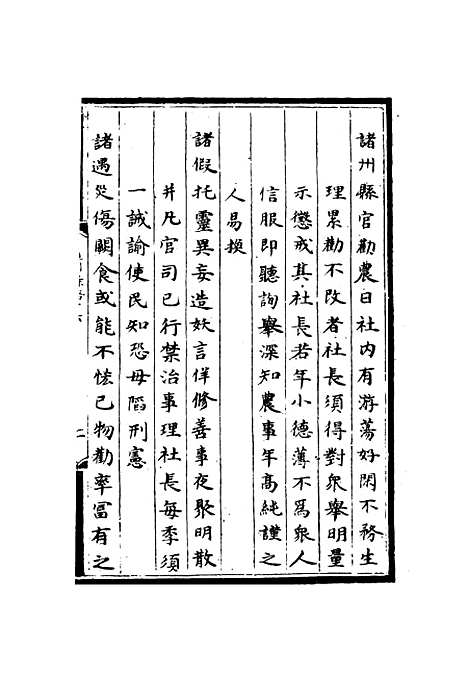 諸州縣官勸農日社内有游蕩好閑不務生
理累勸不改者社長須得對衆舉明量
示懲戒其社長若年小德薄不爲衆人
信服即聽詢舉深知農事年高純謹之
人易換
諸假托靈異妄造妖言佯修善事夜聚明散
并凡官司已行禁治事理社長每季須
一誡諭使民知恐毋陷刑憲
諸遇灾傷闕食或能不恡己物勸率富有之